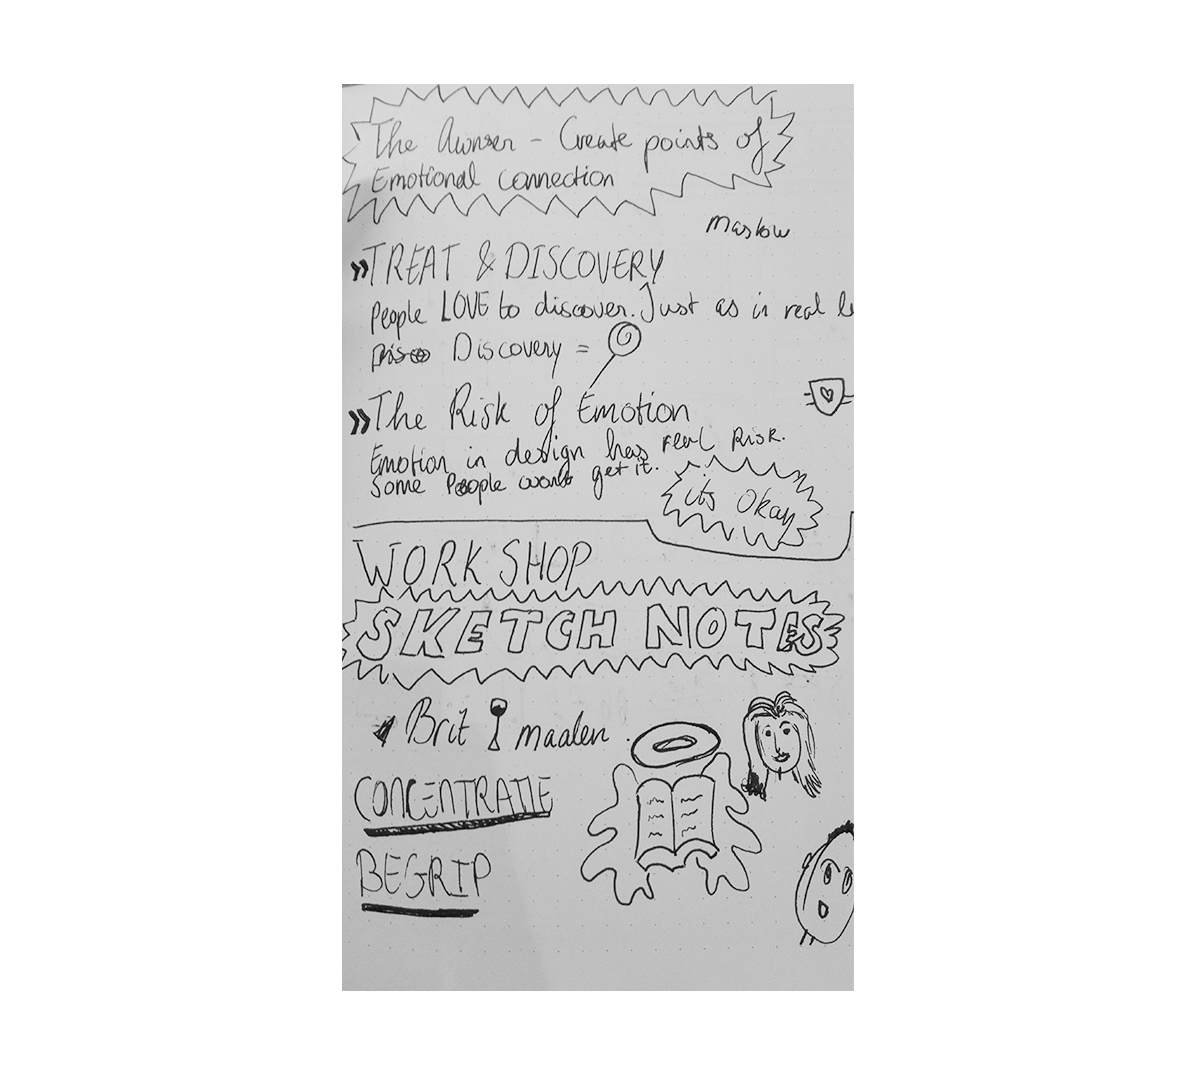 The Awnser - Create points of
Emotional connection
Maslow
» TREAT & DISCOVERY
People LOVE to discover. Just as in real
Discovery =
» The Risk of Emotion
Emotion in design has real Risk.
Some People wont get it.
its Okay
WORKSHOP
SKETCH NOTES
Brit maalen
CONCENTRATIE
BEGRIP